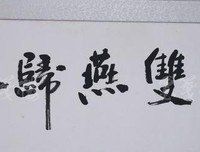 雙燕歸